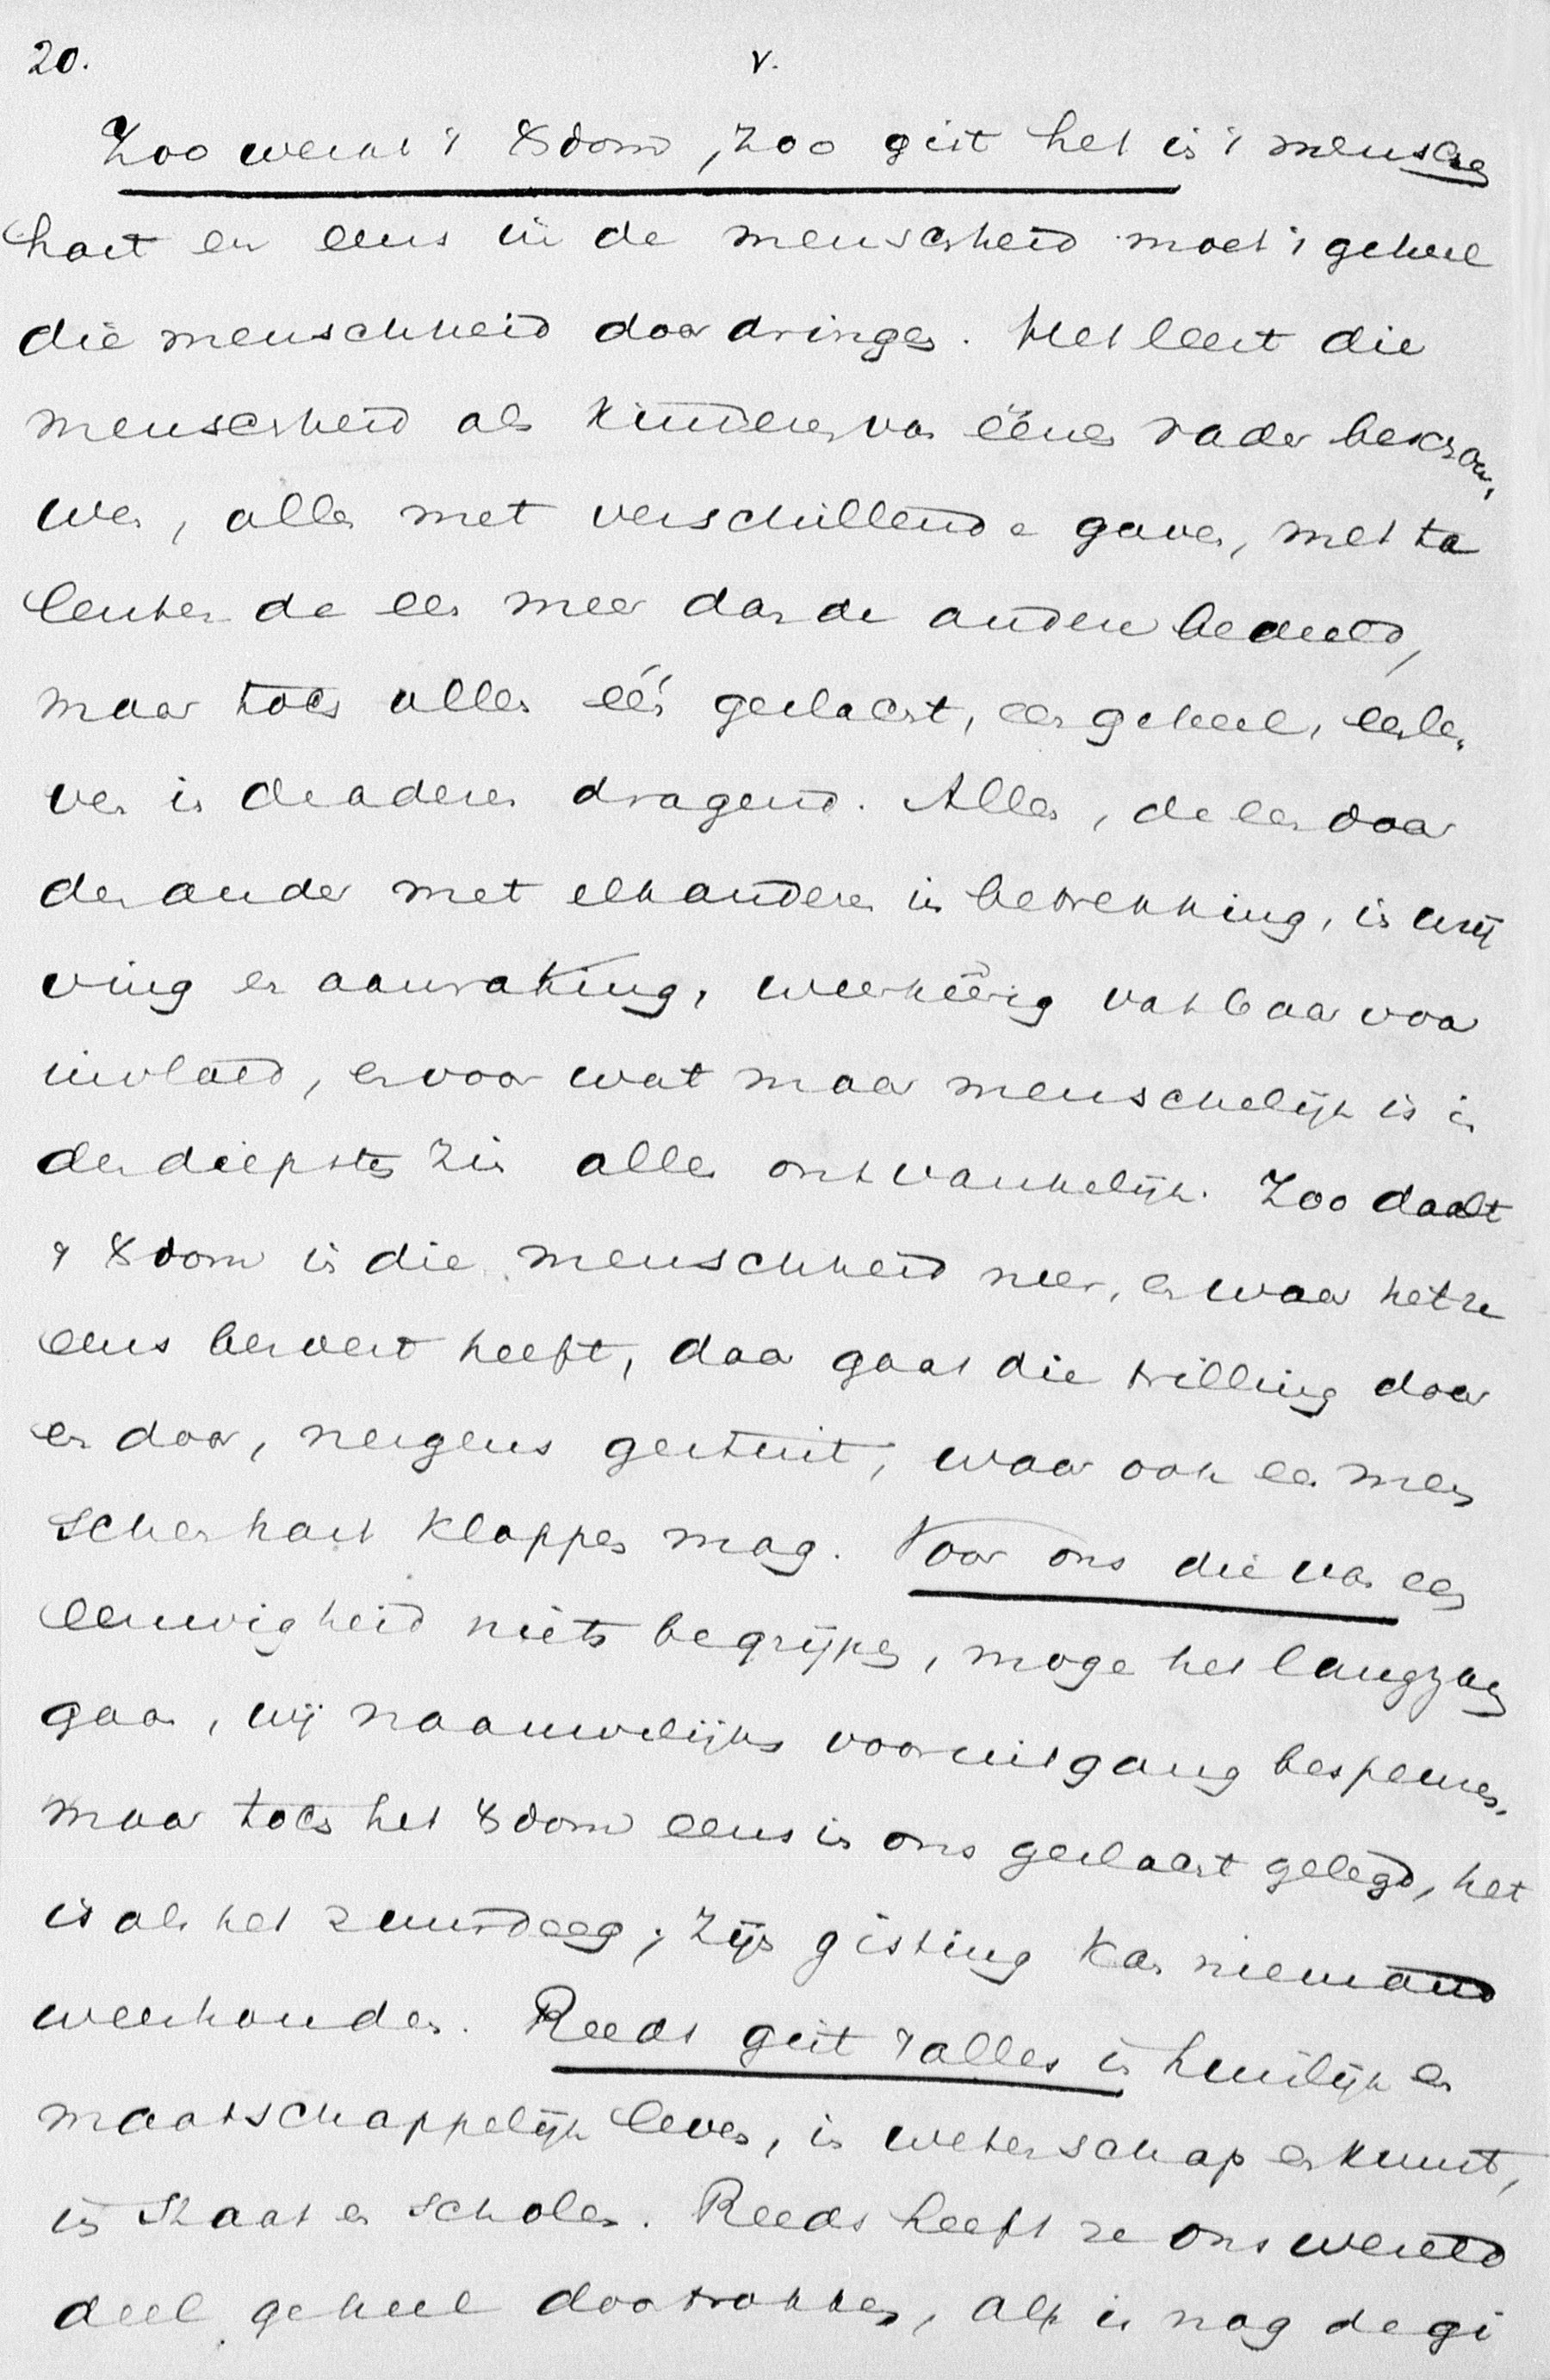 20.
v.
Zoo werkt 't Xdom, zoo gist het in 't menschen
hart en eens in de menschheid moet 't geheel
die menschheid doordringen. Het leert die
menschheid als kinderen van éénen vader beschou,
wen, allen met verschillende gaven, met ta
lenten de een meer dan de andere bedeeld,
maar toch allen één geslacht, een geheel, een le,
ven in de aderen dragend. Allen, de een door
den ander met elkanderen in betrekking, in wrij
ving en aanraking, weerkeerig vatbaar voor
invloed, en voor wat maar menschelijk is in
den diepsten zin allen ontvankelijk. Zoo daalt
't Xdom in die menschheid neer, en waar het ze
eens beroert heeft, daar gaat die trilling door
en door, nergens gestuit, waar ook een men
schenhart kloppen mag. Voor ons die van een
eeuwigheid niets begrijpen, moge het langzaam
gaan, wij naauwelijks vooruitgang bespeuren,
maar toch het Xdom eens in ons geslacht gelegd, het
is als het zuurdeeg; zijn gisting kan niemand
weerhouden. Reeds gist 't alles in huislijk en
maatschappelijk leven, in wetenschap en kunst,
in Staat en scholen. Reeds heeft ze ons wereld
deel geheel doortrokken, al is nog de gi